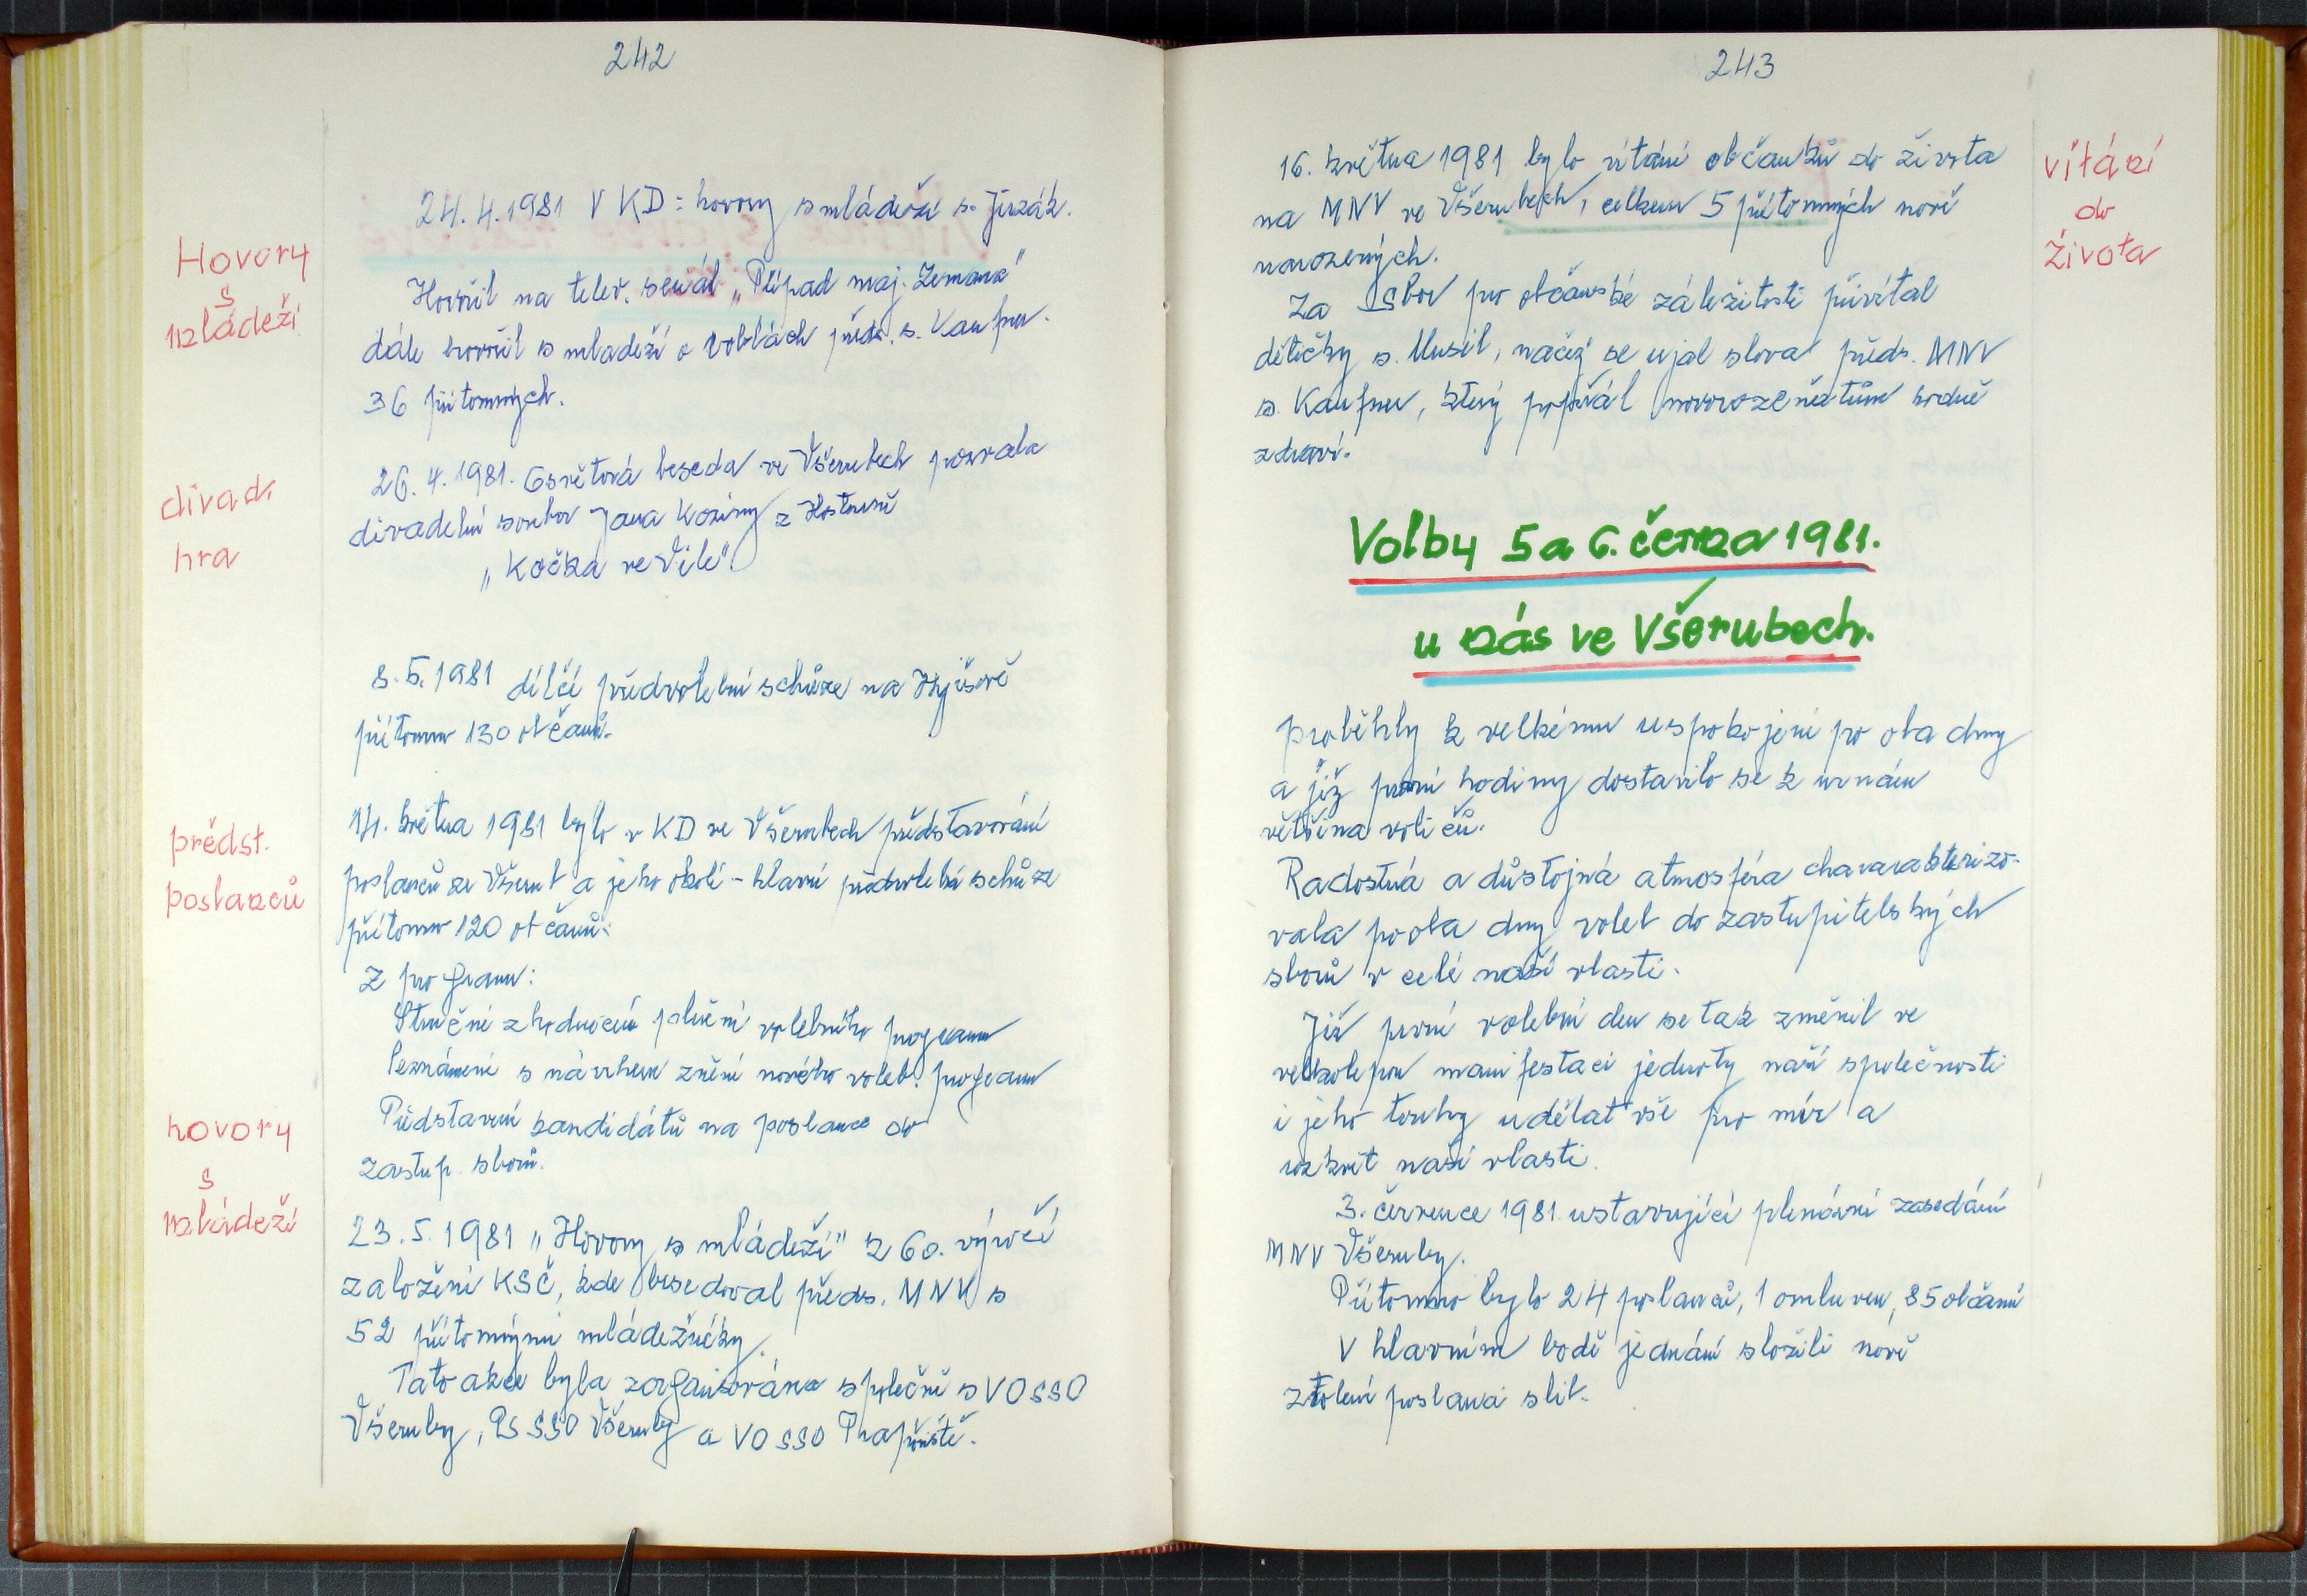 242
Hovory
s
mládeži
24.4.1981 V KD: hovory s mládeži s. Jirzák.
Hovořil na telev. seriál „Případ maj. Zemana"
dále hovořil s mladeži o volbách předs. s. Kaufner.
36 přítomných.
divad.
hra
26.4.1981. Osvětová beseda ve Všerubech pozvala
divadelní soubor Jana Koziny z Hostouně
„Kočka ve Vile"
8.5.1981 dílčí předvolební schůze na Hyjšově
přítomno 130 občanů.
předst.
poslanců
14. května 1981 bylo v KD ve Všerubech představování
poslanců ze Všerub a jeho okolí - hlavní předvolební schůze
přítomno 120 občanů:
Z programu:
Stručné zhodnocení plnění volebního programu
Seznámení s návrhem znění nového voleb. programu
Představení kandidátů na poslance do
zastup. sborů.
hovory
s
mládeži
23.5.1981 „Hovory s mládeži" k 60. výročí
založení KSČ, kde besedoval předs. MNV s
52 přítomnými mládežníky.
Tato akce byla zorganisována společně s VO SSO
Všeruby, PS SSO Všeruby a VO SSO
243
vítání
do
života
16. května 1981 bylo vítání občanků do života
na MNV ve Všerubech, celkem 5 přítomných nově
narozených.
Za Sbor pro občanské záležitosti přivítal
dětičky s. Musil, načež se ujal slova předs. MNV
s. Kaufner, který popřál novorozeňatům hodně
zdraví.
Volby 5 a 6. června 1981.
u nás ve Všerubech.
proběhly k velkému uspokojení po oba dny
a již první hodiny dostavilo se k urnám
většina voličů.
Radostná a důstojná atmosféra charakterizo-
vala po oba dny voleb do zastupitelských
sborů v celé naší vlasti.
Již první volební den se tak změnil ve
velkolepou manifestaci jednoty naší společnosti
i jeho touhy udělat vše pro mír a
rozkvět naší vlasti.
3. července 1981 ustavující plenární zasedání
MNV Všeruby.
Přítomno bylo 24 poslanců, 1 omluven, 85 občanů
V hlavním bodě jednání složili nově
zvolení poslanci slib.